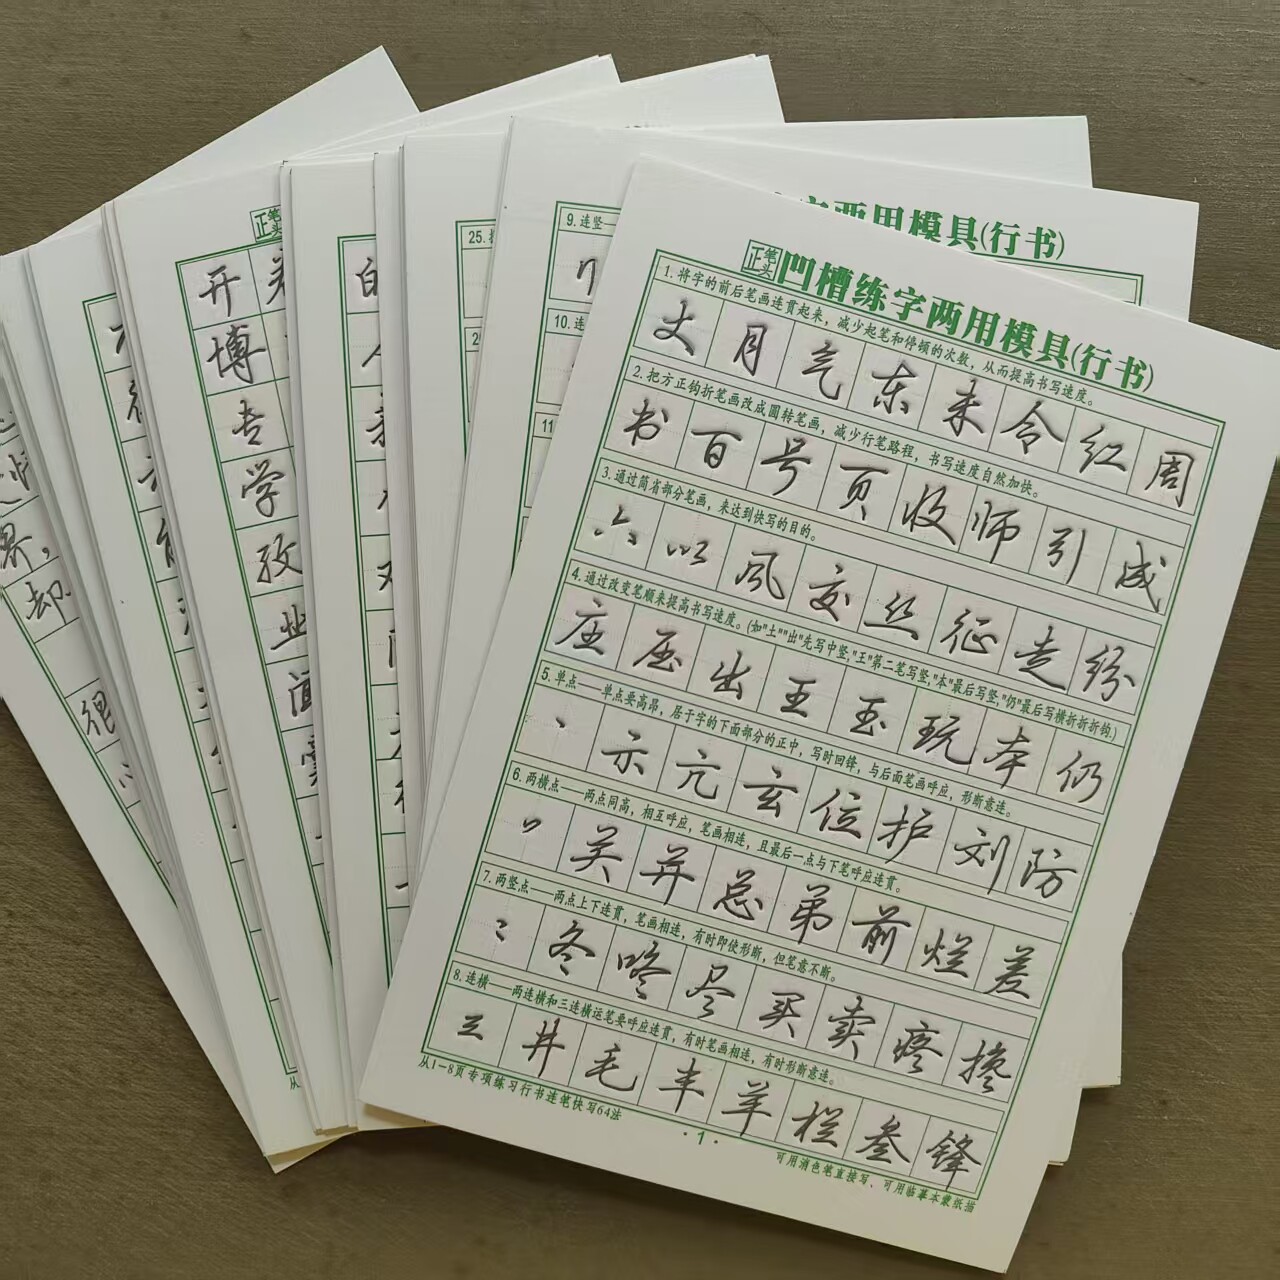 正笔头
凹槽练字两用模具(行书)
1. 将字的前后笔画连贯起来，减少起笔和停顿的次数，从而提高书写速度。
丈月气东来令红周
2. 把方正钩折笔画改成圆转笔画，减少行笔路程，书写速度自然加快。
书百号页收师引成
3. 通过简省部分笔画，来达到快写的目的。
六以风交丝征走纷
4. 通过改变笔顺来提高书写速度。(如"土""出"先写中竖,"王"第二笔写竖,"本"最后写竖,"仍"最后写横折折折钩.)
庄压出王玉玩本仍
5. 单点——单点要高昂，居于字的下面部分的正中，写时回锋，与后面笔画呼应，形断意连。
丶示亢玄位护刘防
6. 两横点——两点同高，相互呼应，笔画相连，且最后一点与下笔呼应连贯。
关并总弟前烂差
7. 两竖点——两点上下连贯，笔画相连，有时即使形断，但笔意不断。
冬咚尽买卖疼搀
8. 连横——两连横和三连横运笔要呼应连贯，有时笔画相连，有时形断意连。
三井毛丰羊栏叁锋
从1-8页专项练习行书连笔快写64法
·1·
可用消色笔直接写，可用临摹本蒙纸描
两用模具(行书)
9. 连竖一
10. 连
11
25.
正笔头
开
博
专
学
孜
业
闻
的
却
很